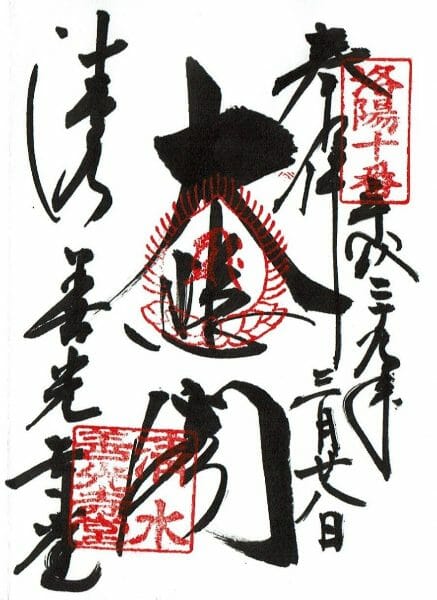 洛陽十番
奉拝
平成二九年
三月廿八日
大悲閣
清水
善光寺堂
清水
善光寺堂